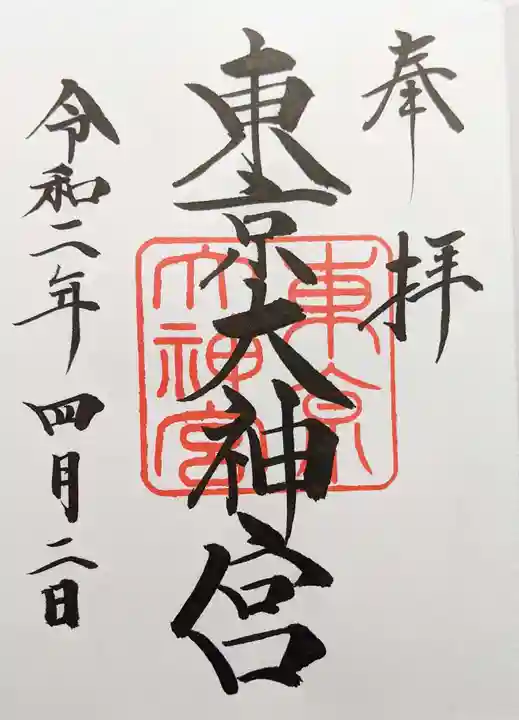 奉拝
東京大神宮
東京大神宮
令和二年四月二日